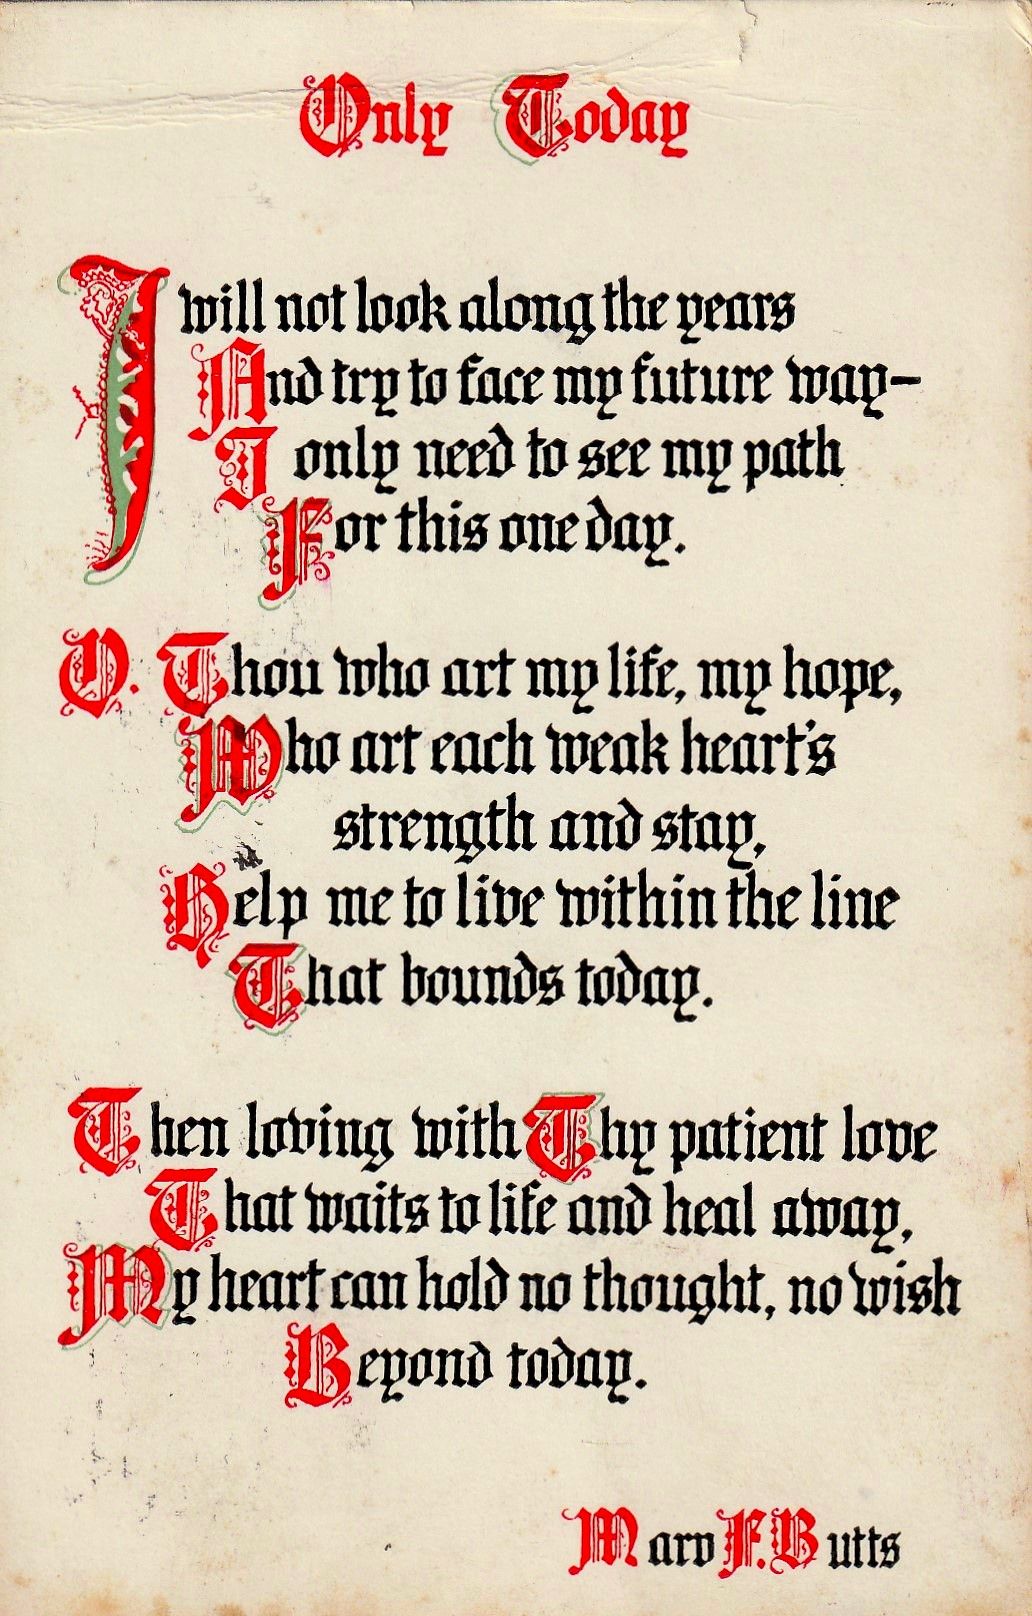 Only Today
I will not look along the years
And try to face my future way-
I only need to see my path
For this one day.
O. Thou who art my life, my hope,
Who art each weak heart's
strength and stay,
Help me to live within the line
That bounds today.
Then loving with Thy patient love
That waits to life and heal away,
My heart can hold no thought, no wish
Beyond today.
Mary F. Butts